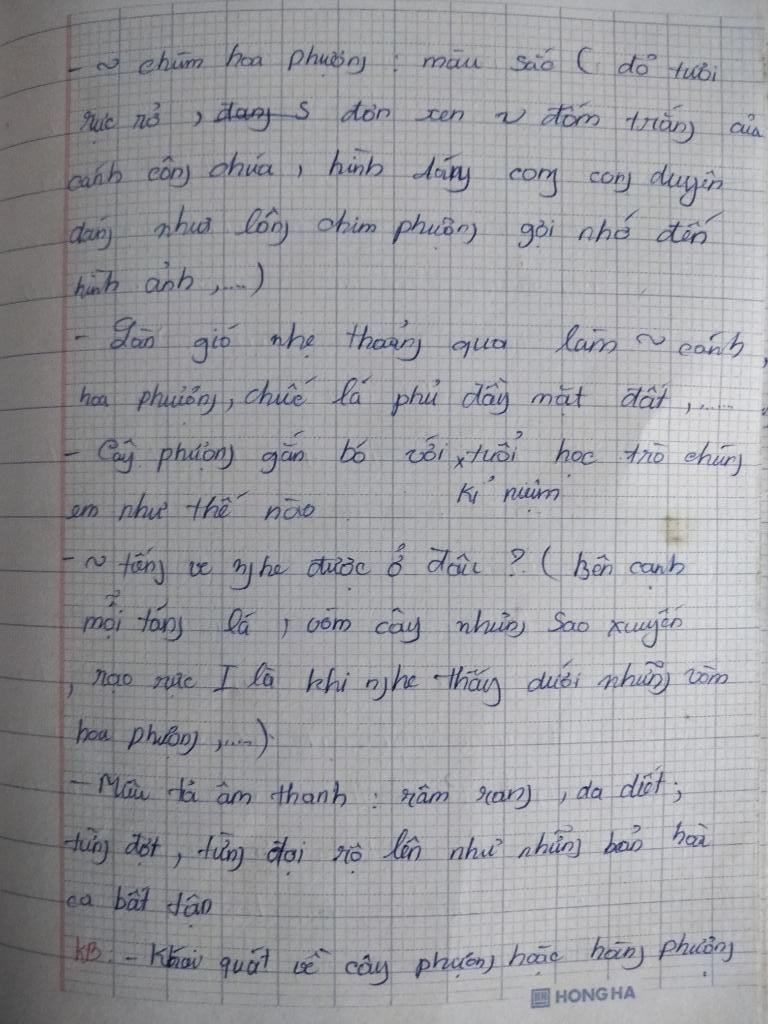 - ~ chùm hoa phượng : màu sắc ( đỏ tươi
rực rỡ , đang S đón xen ~ đốm trắng của
cánh công chúa , hình dáng cong cong duyên
dáng như lông chim phượng gợi nhớ đến
hình ảnh ,....)
- Làn gió nhẹ thoảng qua làm ~ cánh
hoa phượng, chiếc lá phủ đầy mặt đất ,.....
- Cây phượng gắn bó với x tuổi học trò chúng
kỉ niệm
em như thế nào
- ~ tiếng ve nghe được ở đâu ? ( Bên cạnh
mỗi táng lá , vòm cây nhưng sao xuyến
, rạo rực I là khi nghe thấy dưới những vòm
hoa phượng ,....)
- Miêu tả âm thanh : râm ran , da diết ;
từng đợt , từng đợi rộ lên như những bản hoà
ca bất tận
KB : - Khái quát về cây phượng hoặc hàng phượng
HONG HA